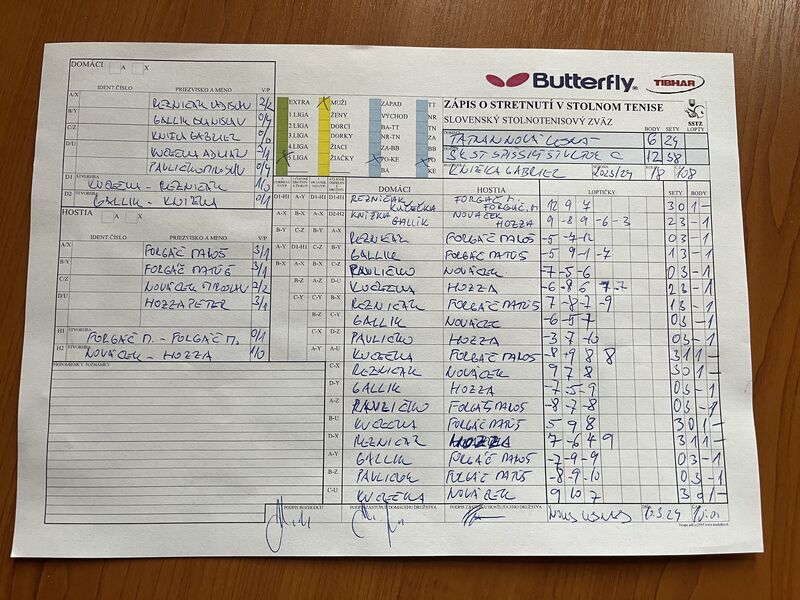 DOMÁCI A X
Butterfly
TIBHAR
IDENT.ČÍSLO PRIEZVISKO A MENO V/P
ZÁPIS O STRETNUTÍ V STOLNOM TENISE
SLOVENSKÝ STOLNOTENISOVÝ ZVÄZ
SSTZ
A/X REZNIČÁK LADISLAV 2/2
B/Y GALLIK DIONISLAV 0/4
C/Z KNIŽKA GABRIEL
D/U KUČEČKA ADRIAN 3/1
PAVLIČKO 0/4
D1 ŠTVORHRA KUČEČKA - REZNIČÁK 1/0
D2 GALLIK - KNIŽKA 0/1
EXTRA MUŽI ZÁPAD TT
1.LIGA ŽENY VÝCHOD NR
2.LIGA DORCI BA-TT TN
3.LIGA DORKY NR-TN ZA
4.LIGA ŽIACI ZA-BB BB
5.LIGA ŽIAČKY PO-KE PO
BA KE
DOMÁCI BODY SETY LOPTY
TATRAN NOVÁ LESNÁ 6 29
ŠKST SPIŠSKÝ ŠTVRTOK C 12 38
KNIŽKA GABRIEL 2023/24 18 108
HOSTIA A X
IDENT.ČÍSLO PRIEZVISKO A MENO V/P
A/X FORGÁČ MAROŠ 3/1
B/Y FORGÁČ MATÚŠ 3/1
C/Z NOVÁČEK MIROSLAV 2/2
D/U HOZZA PETER 3/1
H1 ŠTVORHRA FORGÁČ M. - FORGÁČ M. 0/1
H2 NOVÁČEK - HOZZA 1/0
PRIPOMIENKY POZNÁMKY
DOMÁCI HOSTIA LOPTIČKY SETY BODY
D1-H1 REZNIČÁK KUČEČKA FORGÁČ M. FORGÁČ M. 12 9 7 3 0 1 -
D2-H2 KNIŽKA GALLIK NOVÁČEK HOZZA 9 -8 9 -6 -3 2 3 - 1
REZNIČÁK FORGÁČ MAROŠ -5 -7 -12 0 3 - 1
GALLIK FORGÁČ MATÚŠ -5 9 -1 -7 1 3 - 1
PAVLIČKO NOVÁČEK -7 -5 -6 0 3 - 1
KUČEČKA HOZZA -6 -8 6 7 -7 2 3 - 1
REZNIČÁK FORGÁČ MATÚŠ 7 -8 -7 -9 1 3 - 1
GALLIK NOVÁČEK -6 -5 -7 0 3 - 1
PAVLIČKO HOZZA -3 7 -10 0 3 - 1
A-U KUČEČKA FORGÁČ MAROŠ -8 9 8 8 3 1 1 -
C-X REZNIČÁK NOVÁČEK 9 7 8 3 0 1 -
D-Y GALLIK HOZZA -7 -5 -9 0 3 - 1
A-Z PAVLIČKO FORGÁČ MAROŠ -8 -7 -8 0 3 - 1
B-U KUČEČKA FORGÁČ MATÚŠ 5 9 8 3 0 1 -
D-X REZNIČÁK HOZZA 7 -6 4 9 3 1 1 -
A-Y GALLIK FORGÁČ MAROŠ -7 -9 -9 0 3 - 1
B-Z PAVLIČKO FORGÁČ MATÚŠ -8 -9 -10 0 3 - 1
C-U KUČEČKA NOVÁČEK 9 10 7 3 0 1 -
PODPIS ROZHODCU PODPIS ZÁSTUPCU DOMÁCEHO DRUŽSTVA PODPIS ZÁSTUPCU HOSŤUJÚCEHO DRUŽSTVA